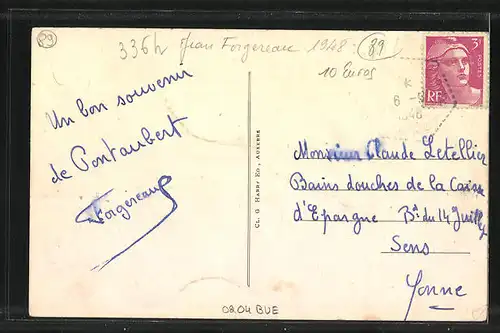 89
336h Jean Forgereau 1948. 89
10 Euros
3F
POSTES
RF
6 -
1948
Un bon souvenir
de Pontaubert
Forgereau
CL. G. HARRY ED., AUXERRE
Monsieur Claude Letellier
Bains douches de la Caisse
d'Epargne Bd du 14 Juillet
Sens
Yonne
08.04 BUE